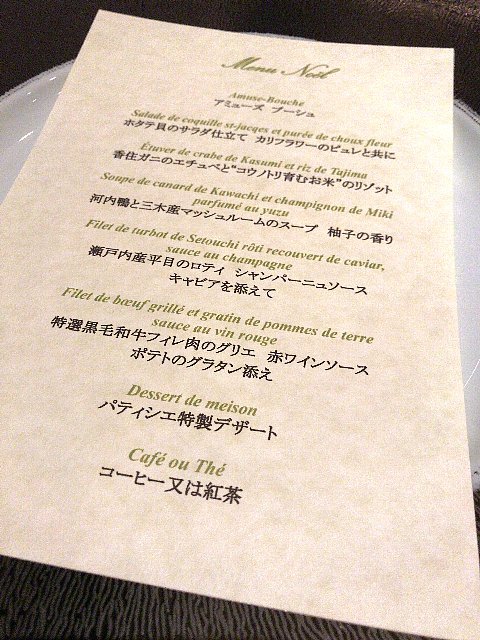 Menu Noël
Amuse-Bouche
アミューズ ブーシュ
Salade de coquille st-jacqes et purée de choux fleur
ホタテ貝のサラダ仕立て カリフラワーのピュレと共に
Étuver de crabe de Kasumi et riz de Tajima
香住ガニのエチュベと“コウノトリ育むお米”のリゾット
Soupe de canard de Kawachi et champignon de Miki
parfumé au yuzu
河内鴨と三木産マッシュルームのスープ 柚子の香り
Filet de turbot de Setouchi rôti recouvert de caviar,
sauce au champagne
瀬戸内産平目のロティ シャンパーニュソース
キャビアを添えて
Filet de bœuf grillé et gratin de pommes de terre
sauce au vin rouge
特選黒毛和牛フィレ肉のグリエ 赤ワインソース
ポテトのグラタン添え
Dessert de meison
パティシエ特製デザート
Café ou Thé
コーヒー又は紅茶